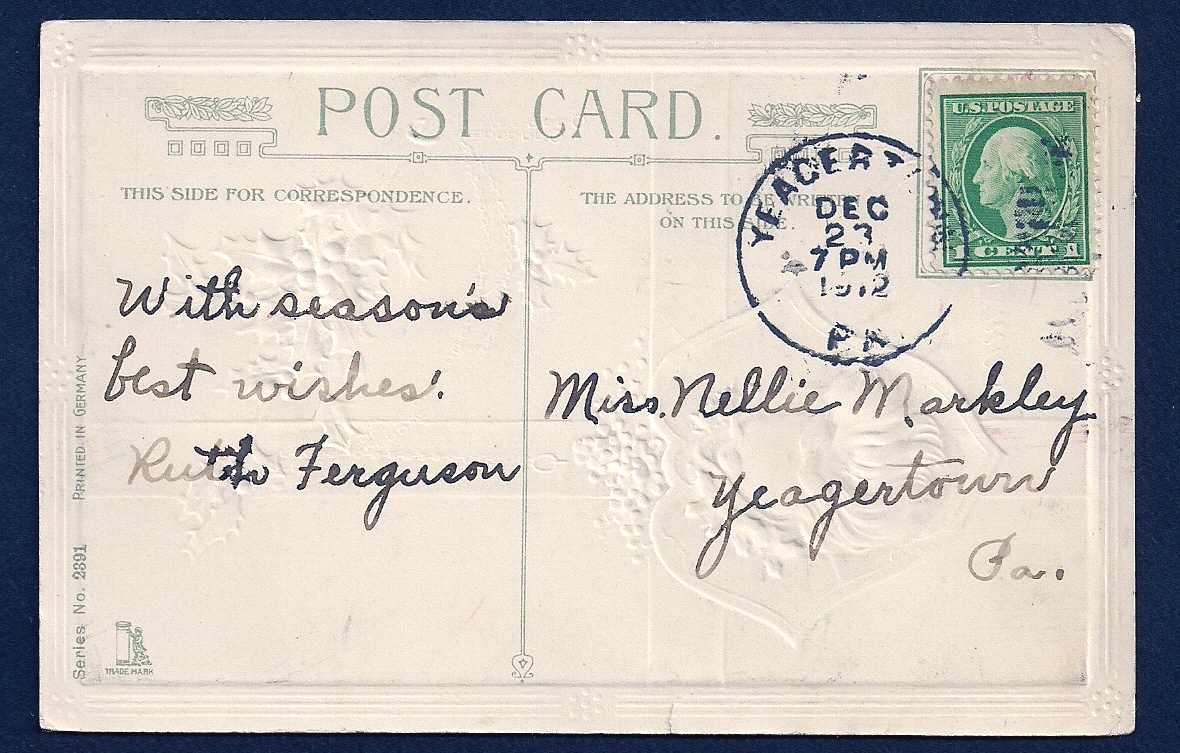 POST CARD.
THIS SIDE FOR CORRESPONDENCE.
THE ADDRESS TO BE WRITTEN
ON THIS SIDE.
U.S. POSTAGE
1 CENT 1
YEAGERT
DEC
23
7 PM
1912
PA.
With season's
best wishes.
Ruth Ferguson
Miss. Nellie Markley
Yeagertown
Pa.
Series No. 2391 PRINTED IN GERMANY
TRADE MARK